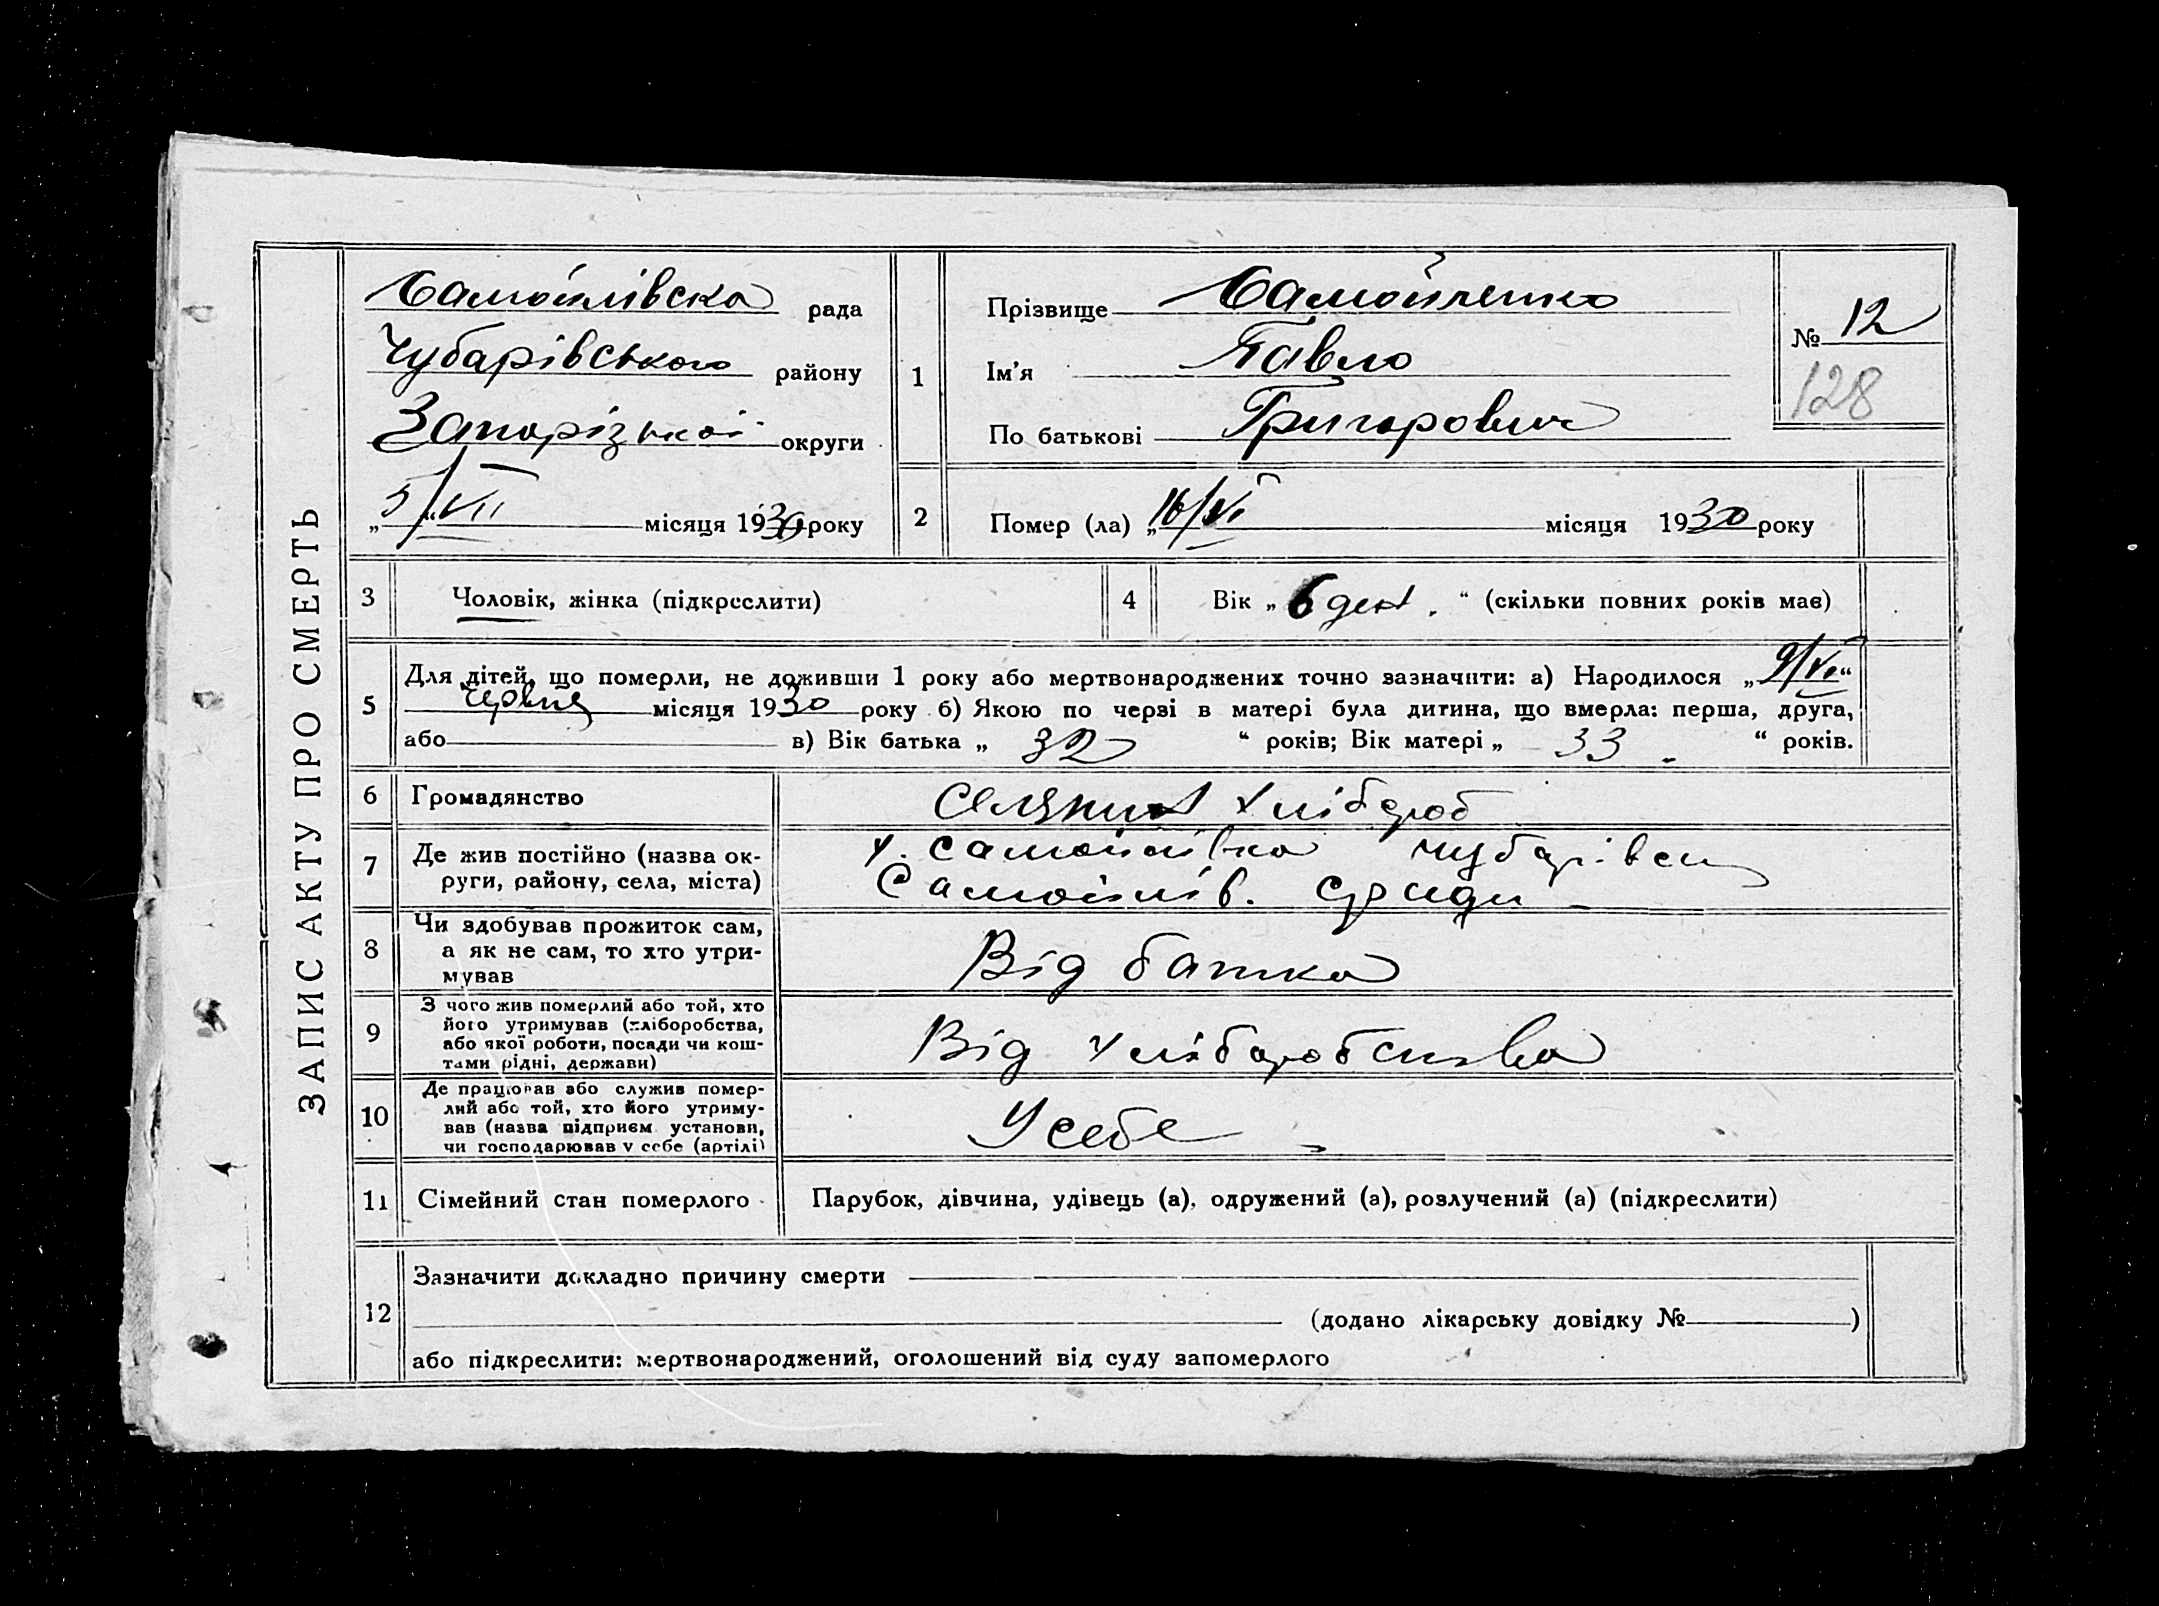 ЗАПИС АКТУ ПРО СМЕРТЬ
Самойлівска рада
Чубарівського району
Запорізької округи
„5/VII“ місяця 1930 року
1
Прізвище Самойленко
Ім'я Павло
По батькові Григорович
№ 12
128
2 Помер (ла) „16/VI місяця 1930 року
3 Чоловік, жінка (підкреслити)
4 Вік „6 ден. “ (скільки повних років має)
5 Для дітей, що померли, не доживши 1 року або мертвонароджених точно зазначити: а) Народилося „9/VI“
червня місяця 1930 року б) Якою по черзі в матері була дитина, що вмерла: перша, друга,
або в) Вік батька „ 32 “ років; Вік матері „ 33 “ років.
6 Громадянство Селянин хлібороб
7 Де жив постійно (назва ок-
руги, району, села, міста)
х. Самойлівка Чубарівск
Самойлів. с/ради
8 Чи здобував прожиток сам,
а як не сам, то хто утри-
мував
Від батка
9 З чого жив померлий або той, хто
його утримував (хліборобства,
або якої роботи, посади чи кош-
тами рідні, держави)
Від хліборобства
10 Де працював або служив помер-
лий або той, хто його утриму-
вав (назва підприєм. установи,
чи господарював у себе (артілі)
У себе
11 Сімейний стан померлого Парубок, дівчина, удівець (а), одружений (а), розлучений (а) (підкреслити)
12 Зазначити докладно причину смерти
(додано лікарську довідку № )
або підкреслити: мертвонароджений, оголошений від суду запомерлого